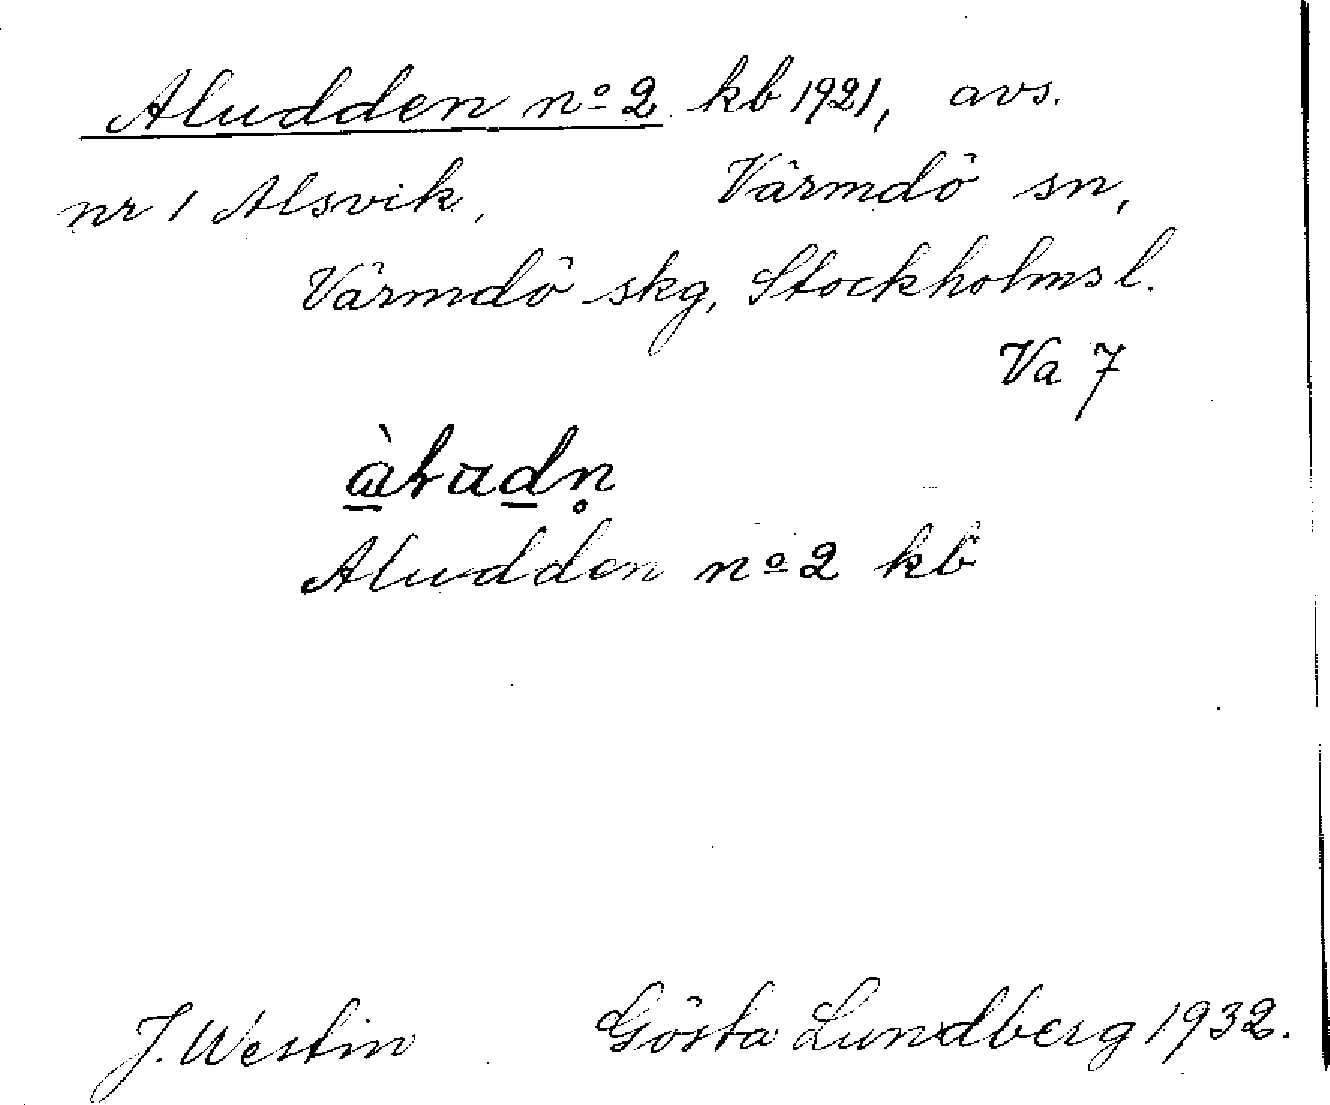 Aludden nº 2 kb 1921, avs.
nr 1 Alsvik, Värmdö sn,
Värmdö skg, Stockholms l.
Va 7
Aludden nº 2 kb
J. Westin Gösta Lundberg 1932.